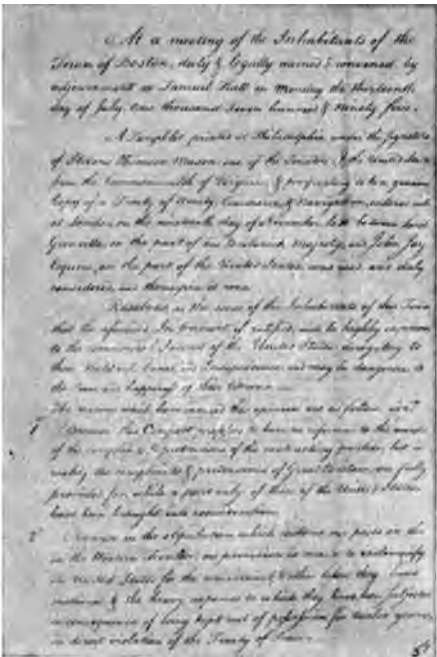 At a meeting of the Inhabitants of the
Town of Boston, duly & legally warned & convened by
adjournment at Faneuil Hall on Monday the thirteenth
day of July, one thousand seven hundred & ninety five.
A Pamphlet printed at Philadelphia under the signature
of Stevens Thomson Mason one of the Senators of the United States
from the Commonwealth of Virginia, & purporting to be a genuine
Copy of a Treaty of Amity, Commerce, & Navigation, entered into
at London, on the nineteenth day of November last between Lord
Grenville, on the part of his Britannic Majesty, and John Jay
Esquire, on the part of the United States, was read, and duly
considered, and thereupon it was
Resolved, as the sense of the Inhabitants of this Town
that the aforesaid Instrument if ratified, will be highly injurious
to the commercial Interest of the United States, derogatory to
their National honor, and Independence, and may be dangerous to
the peace and happiness of their Citizens
The reasons which have induced this opinion are as follow, viz
1 Because this Compact to have no reference to the
of the complaints & of the contracting parties, but in
the complaints & of Great Britain are fully
provided for, while a part only of those of the United States
have been brought into consideration
2 Because in the stipulation which our posts on the
in the Western frontier, no provision is made to indemnify
the United States for the & other losses they have
sustained & the heavy expences to which they have been subjected
in consequence of being kept out of possession for twelve years,
in direct violation of the Treaty of Peace